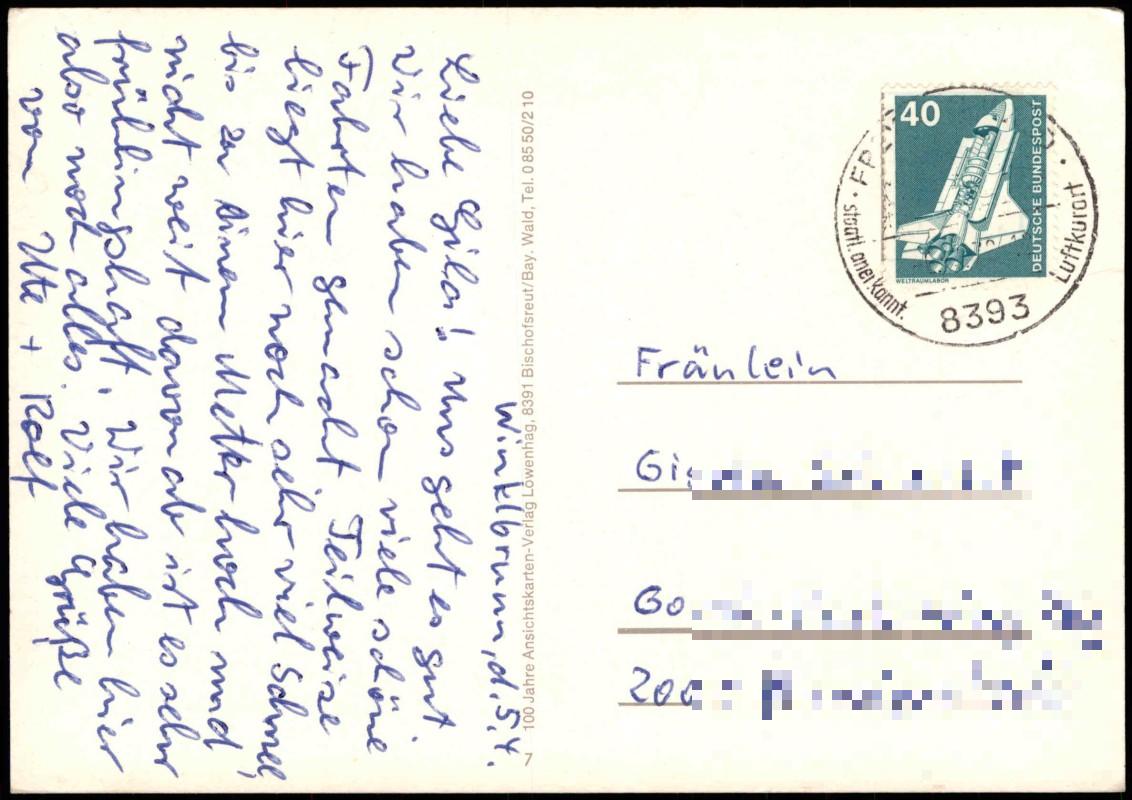 Winklbrunn, d. 5.4.
Liebe Gila! Uns geht es gut
Wir haben schon viele schöne
Fahrten gemacht. Teilweise
liegt hier noch sehr viel Schnee,
bis zu einem Meter hoch und
nicht weit davon ab ist es sehr
frühlingshaft. Wir haben hier
also noch alles. Viele Grüße
von Ute + Rolf
7 100 Jahre Ansichtskarten-Verlag Löwenhag, 8391 Bischofsreut/Bay. Wald, Tel. 0 85 50/2 10
40
DEUTSCHE BUNDESPOST
WELTRAUMLABOR
staatl. anerkannt.
Luftkurort
8393
Fräulein